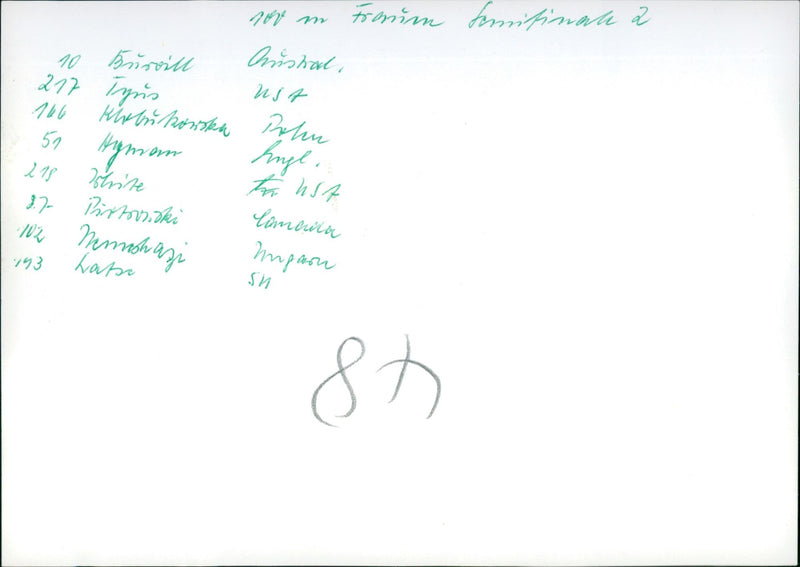 100 m Frauen Semifinale 2
10 Burvill Austral.
217 Tyus USA
166 Klobukowska Polen
51 Hyman Engl.
219 White USA
Piotrowski Canada
102 Nemeshazi Ungarn
193 Latse SU
48